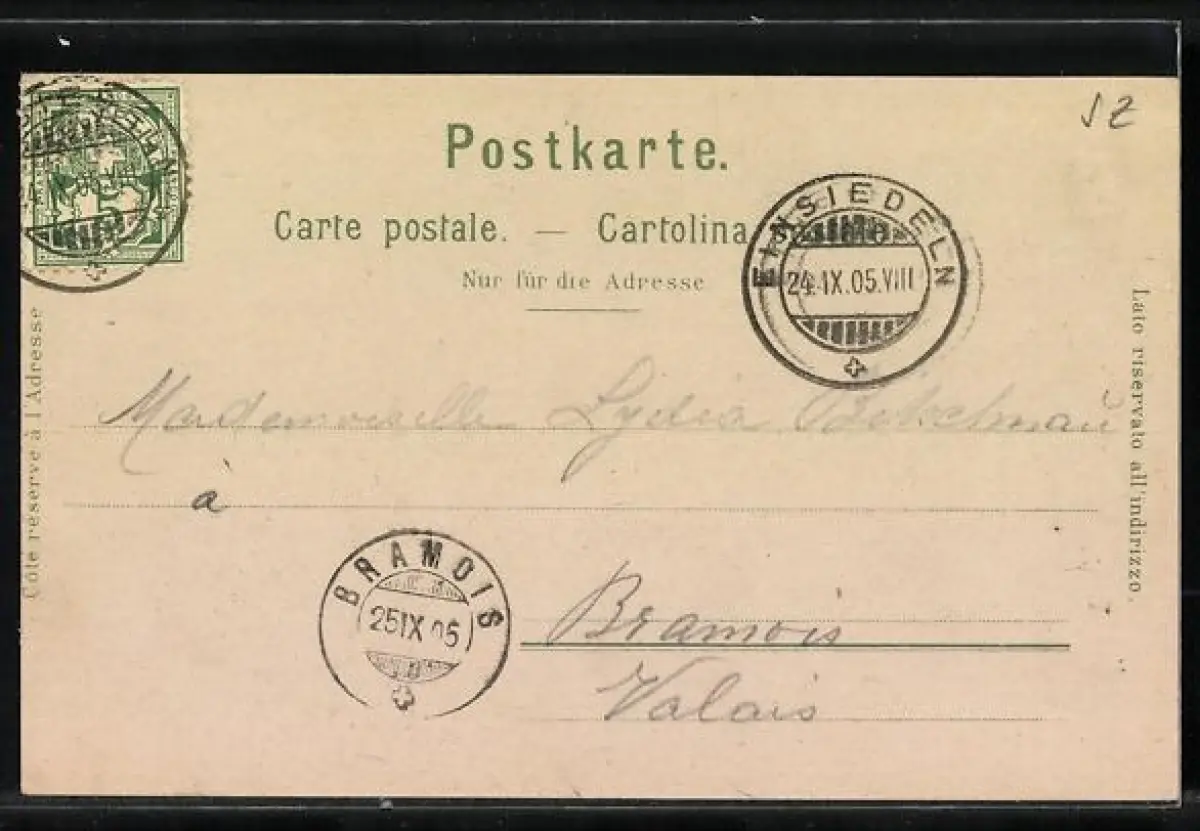 JZ
Postkarte.
Carte postale. — Cartolina
Nur für die Adresse
EINSIEDELN
24.IX.05.VIII
Côté réservé à l'Adresse
Lato riservato all'indirizzo.
Mademoiselle Lydia
à
BRAMOIS
25 IX 05
Bramois
Valais